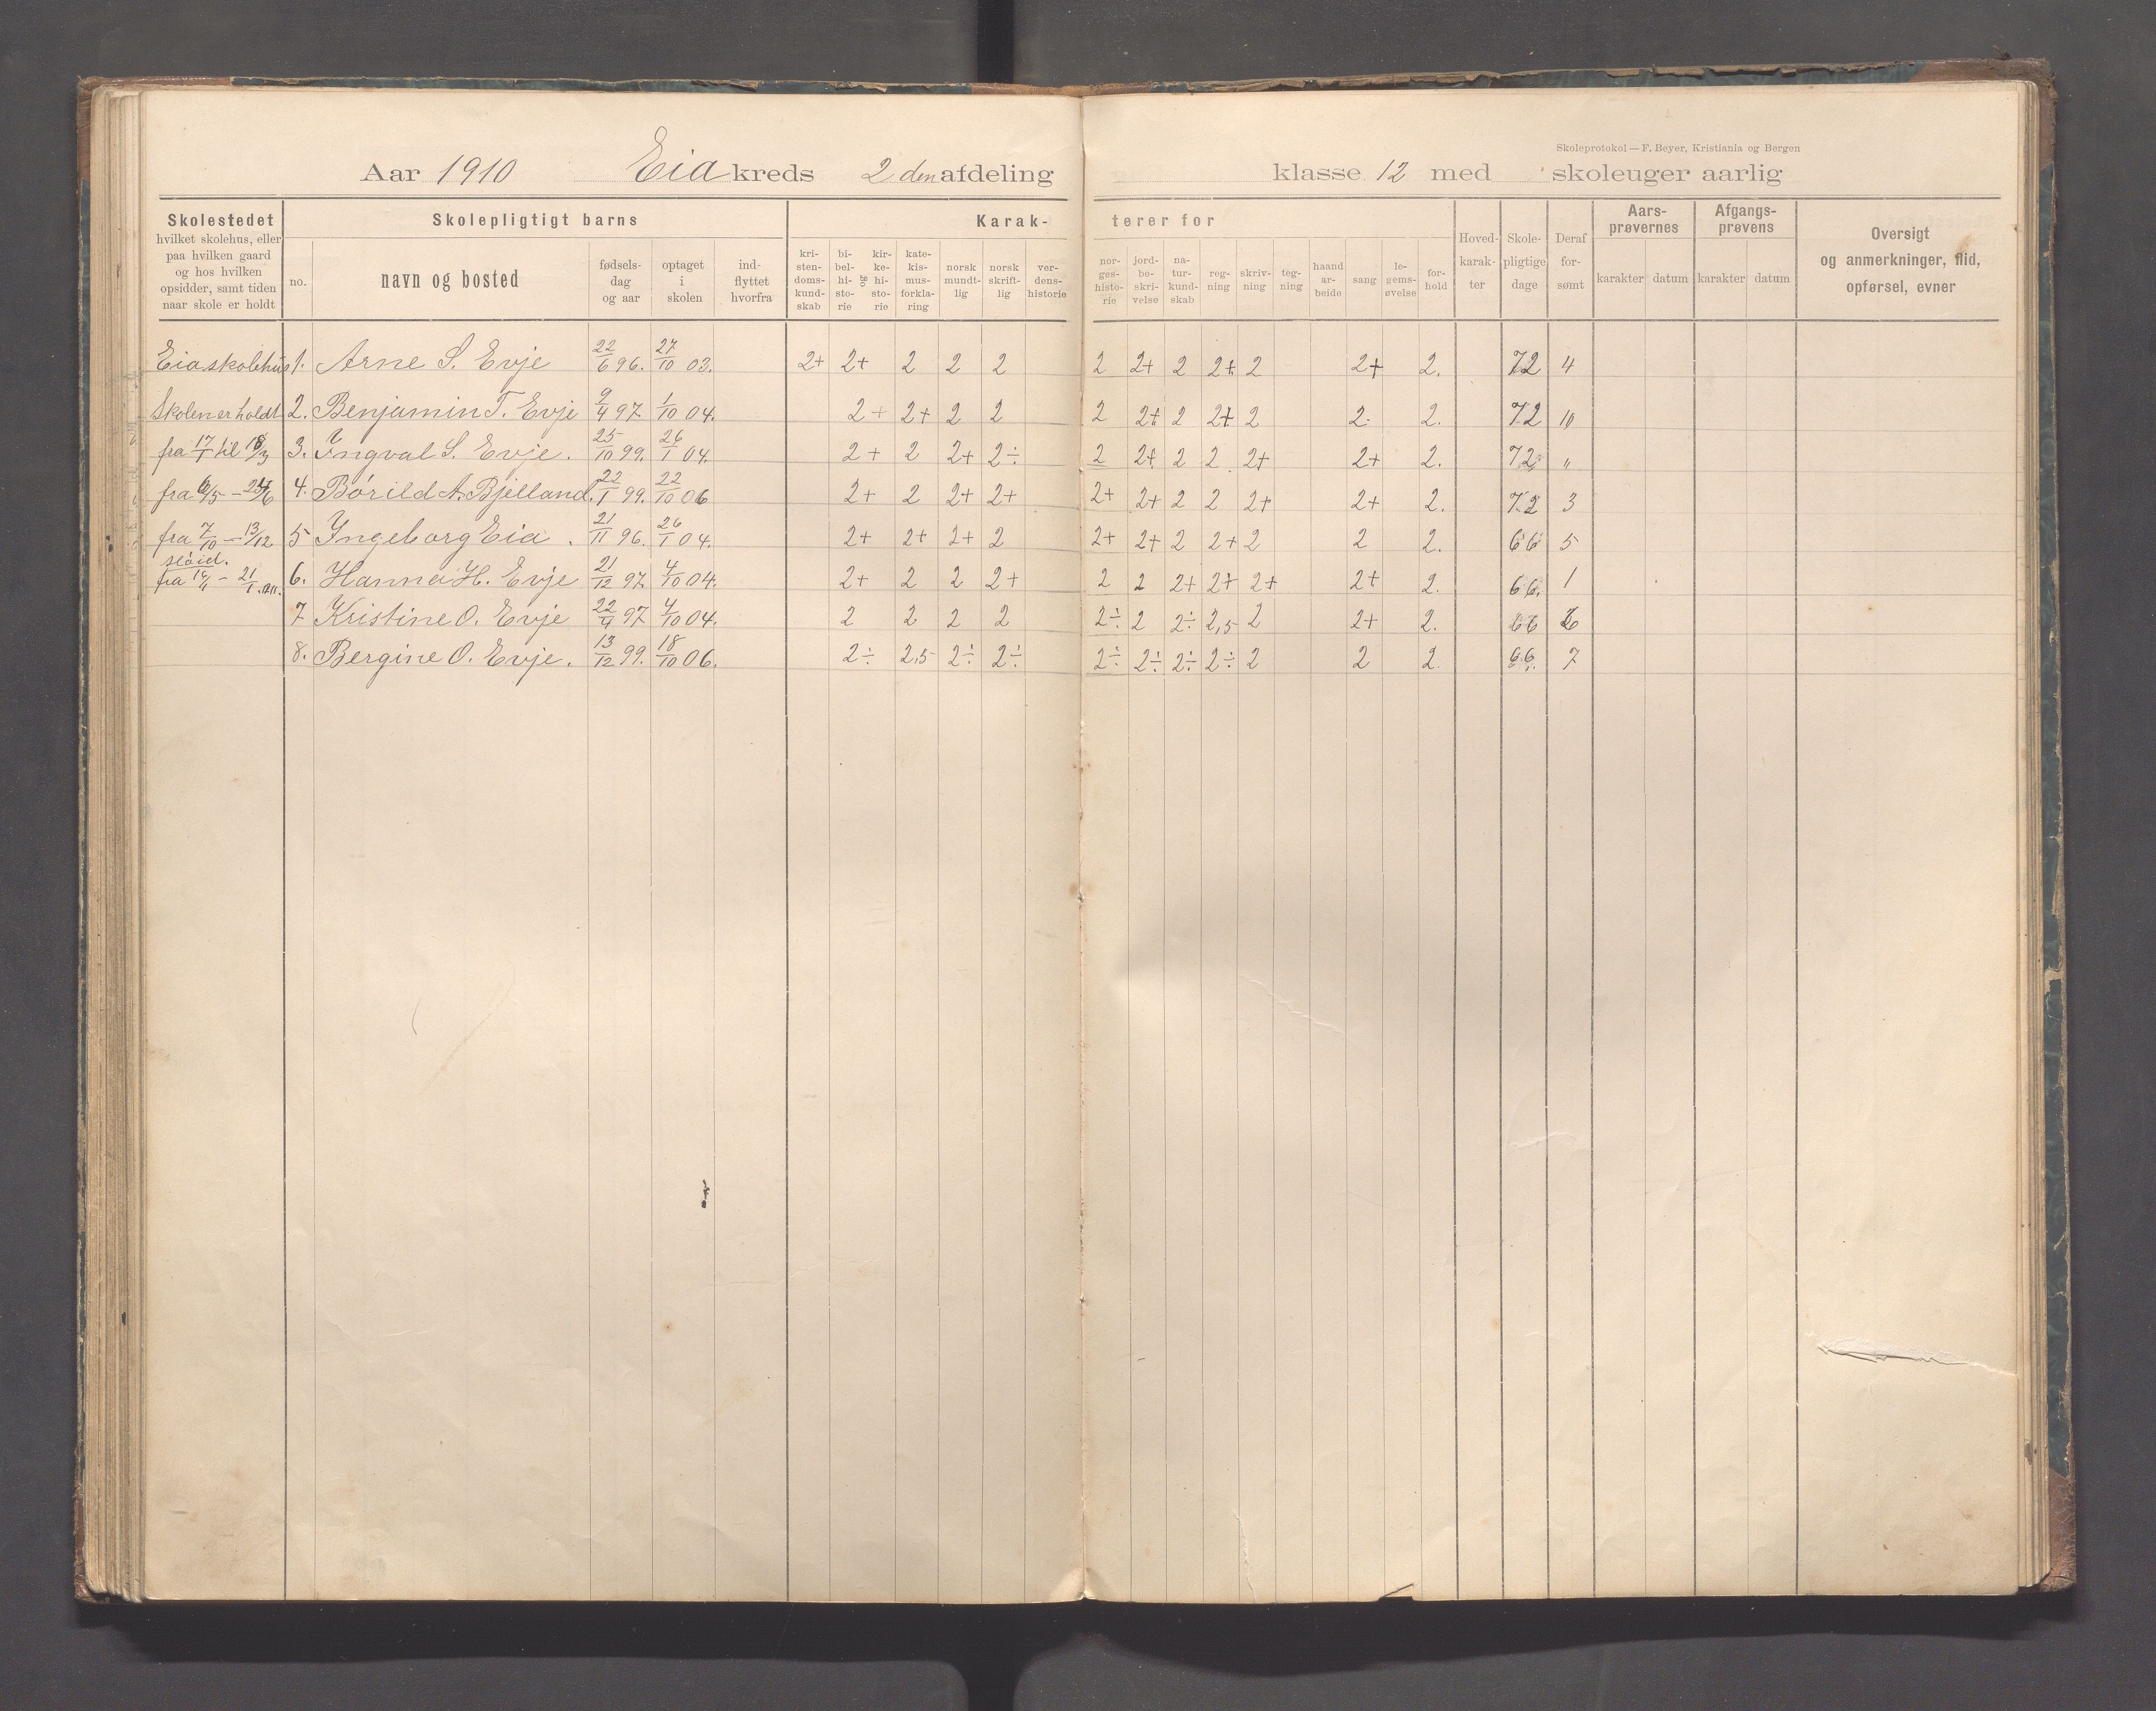 Skoleprotokol — F. Beyer, Kristiania og Bergen
Aar 1910 Eia kreds 2den afdeling klasse 12 med skoleuger aarlig
Skolestedet
hvilket skolehus, eller
paa hvilken gaard
og hos hvilken
opsidder, samt tiden
naar skole er holdt
Skolepligtigt barns
no.
navn og bosted
fødsels-
dag
og aar
optaget
i
skolen
ind-
flyttet
hvorfra
Karak-
kri-
sten-
doms-
kund-
skab
bi-
bel-
hi-
sto-
rie
og
kir-
ke-
hi-
sto-
rie
kate-
kis-
mus-
forkla-
ring
norsk
mundt-
lig
norsk
skrift-
lig
ver-
dens-
historie
terer for
nor-
ges-
histo-
rie
jord-
be-
skri-
velse
na-
tur-
kund-
skab
reg-
ning
skriv-
ning
teg-
ning
haand
ar-
beide
sang
le-
gems-
øvelse
for-
hold
Hoved-
karak-
ter
Skole-
pligtige
dage
Deraf
for-
sømt
Aars-
prøvernes
karakter datum
Afgangs-
prøvens
karakter datum
Oversigt
og anmerkninger, flid,
opførsel, evner
Eia skolehus 1. Arne S. Evje 22/6 96. 27/10 03. 2+ 2+ 2 2 2 2 2+ 2 2+ 2 2+ 2. 72 4
Skolen er holdt 2. Benjamin T. Evje 9/4 97. 1/10 04. 2+ 2+ 2 2 2 2+ 2 2+ 2 2. 2. 72 10
fra 17/1 til 18/3 3. Ingval S. Evje. 25/10 99. 26/1 04. 2+ 2 2+ 2÷ 2 2+ 2 2 2+ 2+ 2. 72 "
fra 6/5 – 24/6 4. Børild A. Bjelland. 22/1 99. 22/10 06 2+ 2 2+ 2+ 2+ 2+ 2 2 2+ 2+ 2. 72 3
fra 7/10 – 13/12 5 Ingeborg Eia. 21/11 96. 26/1 04. 2+ 2+ 2+ 2 2+ 2+ 2 2+ 2 2 2. 66 5
sløid.
fra – 21/1 6. Hanna H. Evje 21/12 97. 4/10 04. 2+ 2 2 2+ 2 2 2+ 2+ 2+ 2+ 2. 66. 1
7 Kristine O. Evje 22/4 97 4/10 04. 2 2 2 2 2÷ 2 2÷ 2,5 2 2+ 2. 66
8. Bergine O. Evje. 13/12 99. 18/10 06. 2÷ 2,5 2÷ 2÷ 2÷ 2÷ 2÷ 2÷ 2 2 2. 66. 7